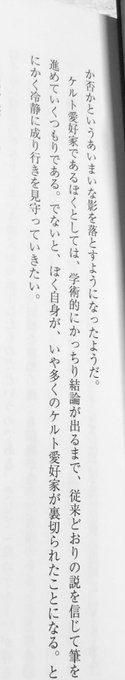 か否かというあいまいな影を落とすようになったようだ。
ケルト愛好家であるぼくとしては、学術的にかっちり結論が出るまで、従来どおりの説を信じて筆を
進めていくつもりである。でないと、ぼく自身が、いや多くのケルト愛好家が裏切られたことになる。と
にかく冷静に成り行きを見守っていきたい。